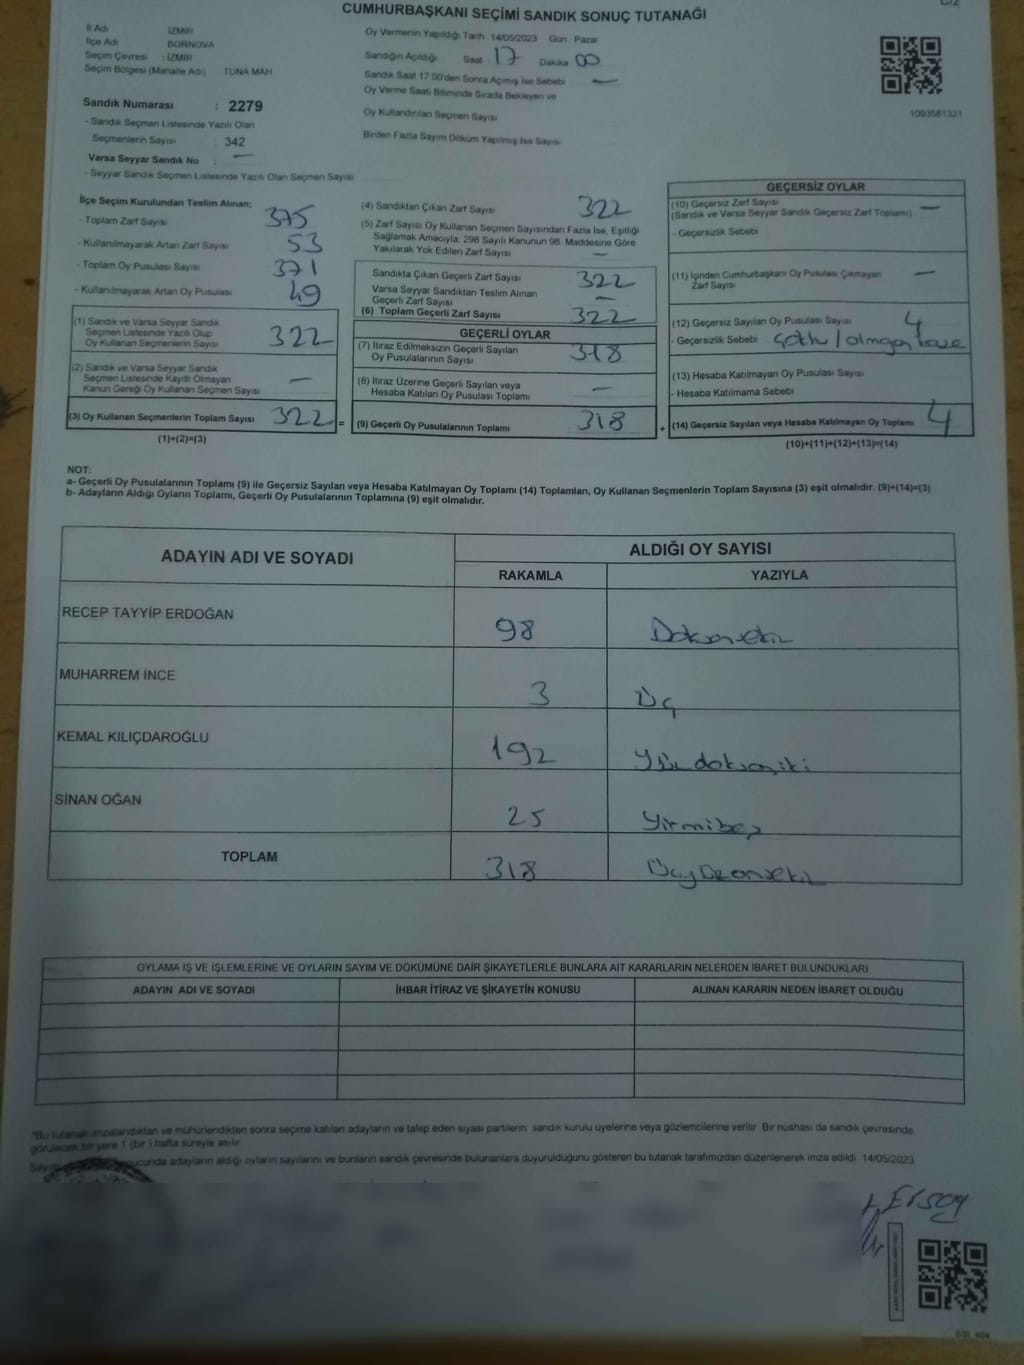 C/2
CUMHURBAŞKANI SEÇİMİ SANDIK SONUÇ TUTANAĞI
İl Adı İZMİR
İlçe Adı BORNOVA
Seçim Çevresi : İZMİR
Seçim Bölgesi (Mahalle Adı) TUNA MAH
Sandık Numarası : 2279
- Sandık Seçmen Listesinde Yazılı Olan
Seçmenlerin Sayısı 342
Varsa Seyyar Sandık No : —
- Seyyar Sandık Seçmen Listesinde Yazılı Olan Seçmen Sayısı
Oy Vermenin Yapıldığı Tarih 14/05/2023 Gün : Pazar
Sandığın Açıldığı Saat 17 Dakika 00
Sandık Saat 17:00'den Sonra Açımış İse Sebebi —
Oy Verme Saati Bitiminde Sırada Bekleyen ve
Oy Kullandırılan Seçmen Sayısı
Birden Fazla Sayım Döküm Yapılmış İse Sayısı
1093561321
İlçe Seçim Kurulundan Teslim Alınan:
- Toplam Zarf Sayısı 375
- Kullanılmayarak Artan Zarf Sayısı 53
- Toplam Oy Pusulası Sayısı 371
- Kullanılmayarak Artan Oy Pusulası 49
(1) Sandık ve Varsa Seyyar Sandık
Seçmen Listesinde Yazılı Olup
Oy Kullanan Seçmenlerin Sayısı 322
(2) Sandık ve Varsa Seyyar Sandık
Seçmen Listesinde Kayıtlı Olmayan
Kanun Gereği Oy Kullanan Seçmen Sayısı —
(3) Oy Kullanan Seçmenlerin Toplam Sayısı 322 =
(1)+(2)=(3)
(4) Sandıktan Çıkan Zarf Sayısı 322
(5) Zarf Sayısı Oy Kullanan Seçmen Sayısından Fazla İse, Eşitliği
Sağlamak Amacıyla, 298 Sayılı Kanunun 98. Maddesine Göre
Yakılarak Yok Edilen Zarf Sayısı —
Sandıkla Çıkan Geçerli Zarf Sayısı 322
Varsa Seyyar Sandıktan Teslim Alınan
Geçerli Zarf Sayısı —
(6) Toplam Geçerli Zarf Sayısı 322
GEÇERLİ OYLAR
(7) İtiraz Edilmeksizin Geçerli Sayılan
Oy Pusulalarının Sayısı 318
(8) İtiraz Üzerine Geçerli Sayılan veya
Hesaba Katılan Oy Pusulası Toplamı —
(9) Geçerli Oy Pusulalarının Toplamı 318 +
GEÇERSİZ OYLAR
(10) Geçersiz Zarf Sayısı —
(Sandık ve Varsa Seyyar Sandık Geçersiz Zarf Toplamı)
- Geçersizlik Sebebi
(11) İçinden Cumhurbaşkanı Oy Pusulası Çıkmayan
Zarf Sayısı —
(12) Geçersiz Sayılan Oy Pusulası Sayısı 4
- Geçersizlik Sebebi
(13) Hesaba Katılmayan Oy Pusulası Sayısı
- Hesaba Katılmama Sebebi
(14) Geçersiz Sayılan veya Hesaba Katılmayan Oy Toplamı 4
(10)+(11)+(12)+(13)=(14)
NOT:
a- Geçerli Oy Pusulalarının Toplamı (9) ile Geçersiz Sayılan veya Hesaba Katılmayan Oy Toplamı (14) Toplamları, Oy Kullanan Seçmenlerin Toplam Sayısına (3) eşit olmalıdır. (9)+(14)=(3)
b- Adayların Aldığı Oyların Toplamı, Geçerli Oy Pusulalarının Toplamına (9) eşit olmalıdır.
ADAYIN ADI VE SOYADI ALDIĞI OY SAYISI
RAKAMLA YAZIYLA
RECEP TAYYİP ERDOĞAN 98 Doksansekiz
MUHARREM İNCE 3 Üç
KEMAL KILIÇDAROĞLU 192 Yüzdoksaniki
SİNAN OĞAN 25 Yirmibeş
TOPLAM 318 Üçyüzonsekiz
OYLAMA İŞ VE İŞLEMLERİNE VE OYLARIN SAYIM VE DÖKÜMÜNE DAİR ŞİKAYETLERLE BUNLARA AİT KARARLARIN NELERDEN İBARET BULUNDUKLARI
ADAYIN ADI VE SOYADI İHBAR İTİRAZ VE ŞİKAYETİN KONUSU ALINAN KARARIN NEDEN İBARET OLDUĞU
"Bu tutanak imzalandıktan ve mühürlendikten sonra seçime katılan adayların ve talep eden siyasi partilerin sandık kurulu üyelerine veya gözlemcilerine verilir. Bir nushası da sandık çevresinde
görülecek bir yere 1 (bir ) hafta süreyle asılır.
ucunda adayların aldığı oyların sayılarını ve bunların sandık çevresinde bulunanlara duyurulduğunu gösteren bu tutanak tarafımızdan düzenlenerek imza edildi. 14/05/2023